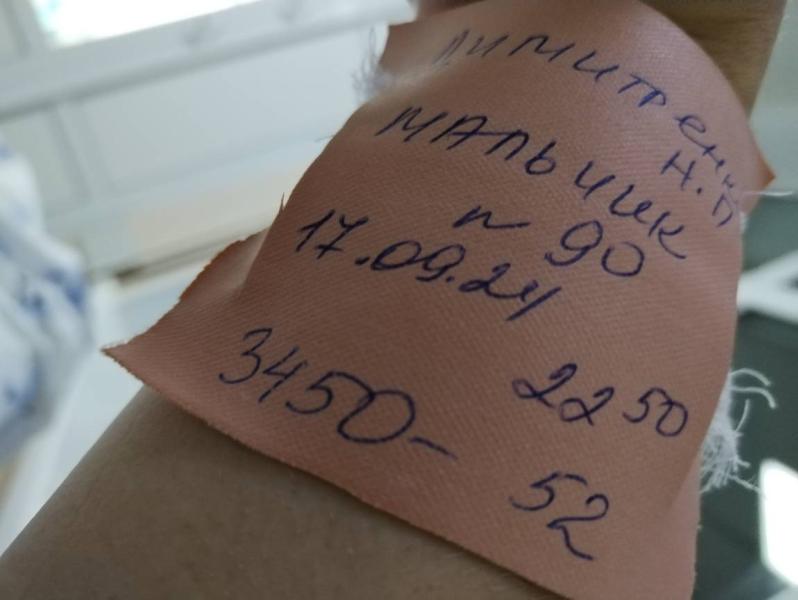 Димитренко
Н.П
мальчик
N 90
17.09.24
22 50
3450-
52